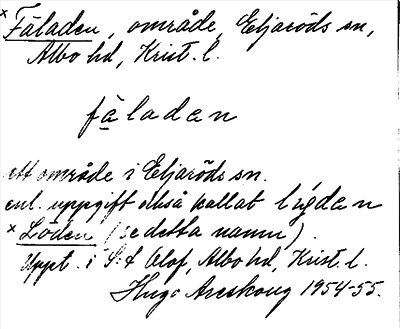 × Fäladen, område, Eljaröds sn,
Albo hd, Krist. l.
fäladen
ett område i Eljaröds sn.
enl. uppgift också kallat lyden
× Löden (se detta namn).
Uppt. i S:t Olof, Albo hd, Krist. l.
Hugo Areskoug 1954-55.